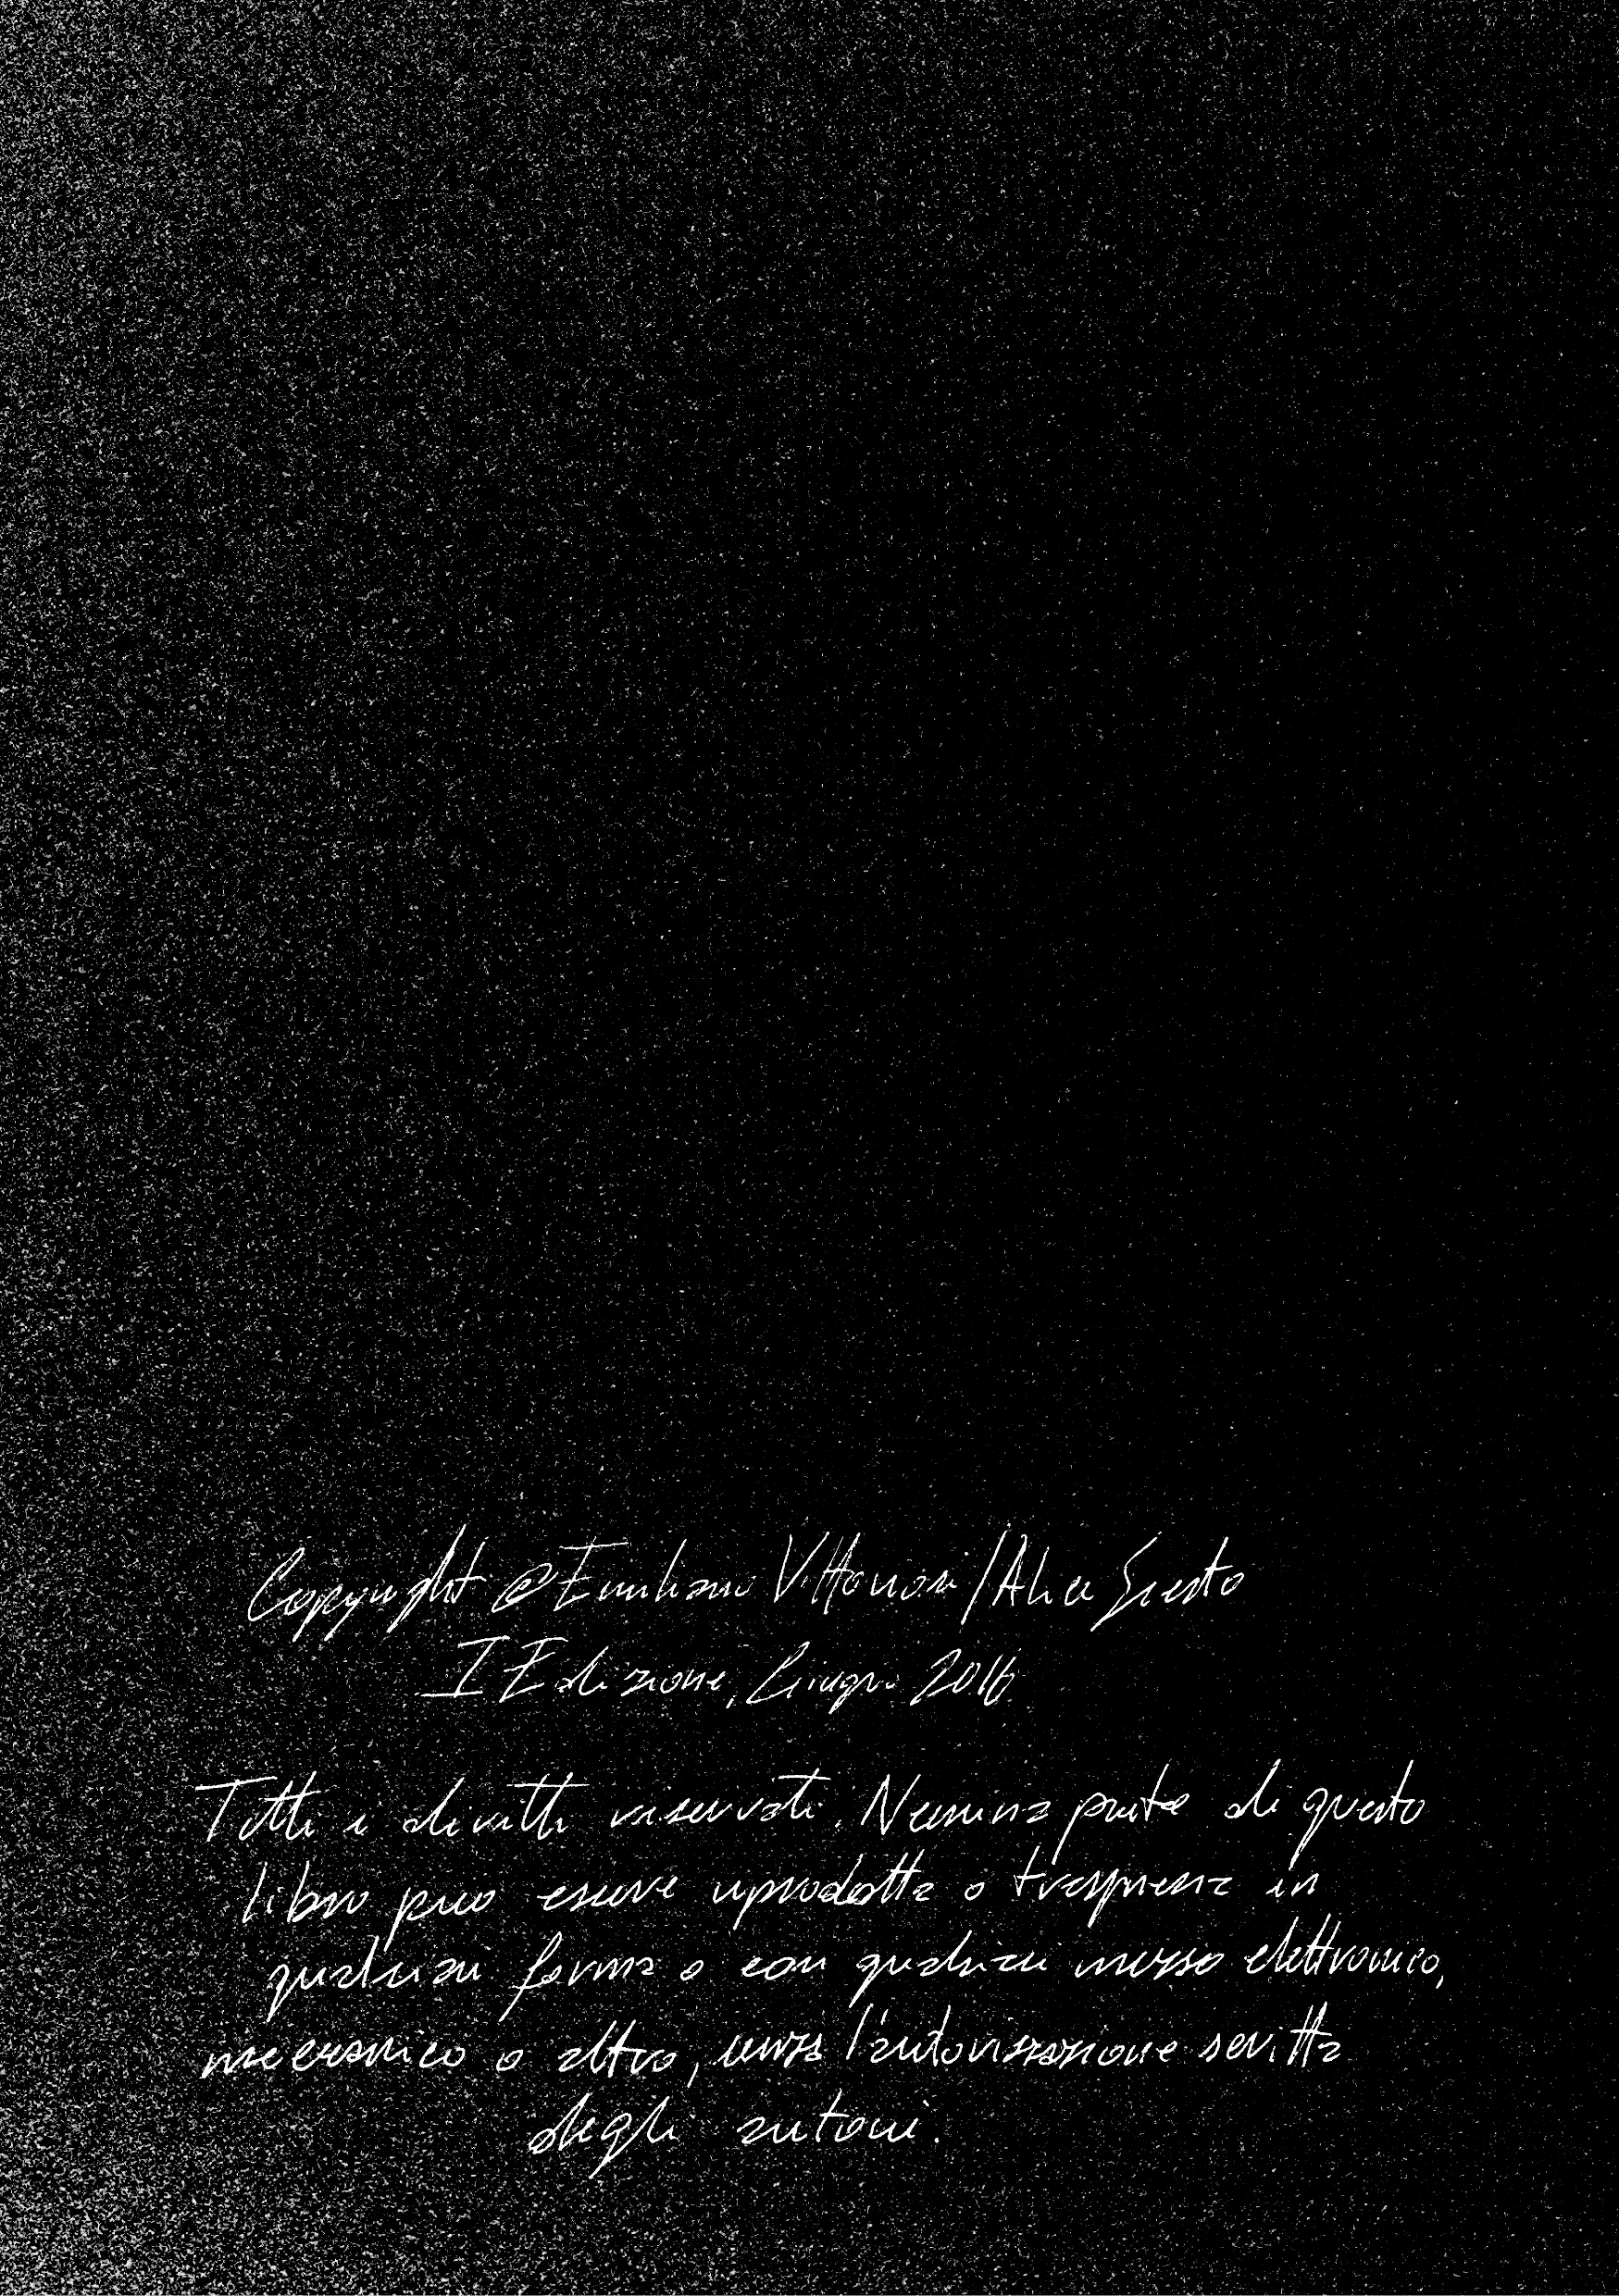 Copyright @ Emiliano Vittoriosi / Alice
I Edizione, Giugno 2016
Tutti i diritti riservati. Nessuna parte di questo
libro può essere riprodotta o trasmessa in
qualsiasi forma o con qualsiasi mezzo elettronico,
meccanico o altro, senza l'autorizzazione scritta
degli autori.